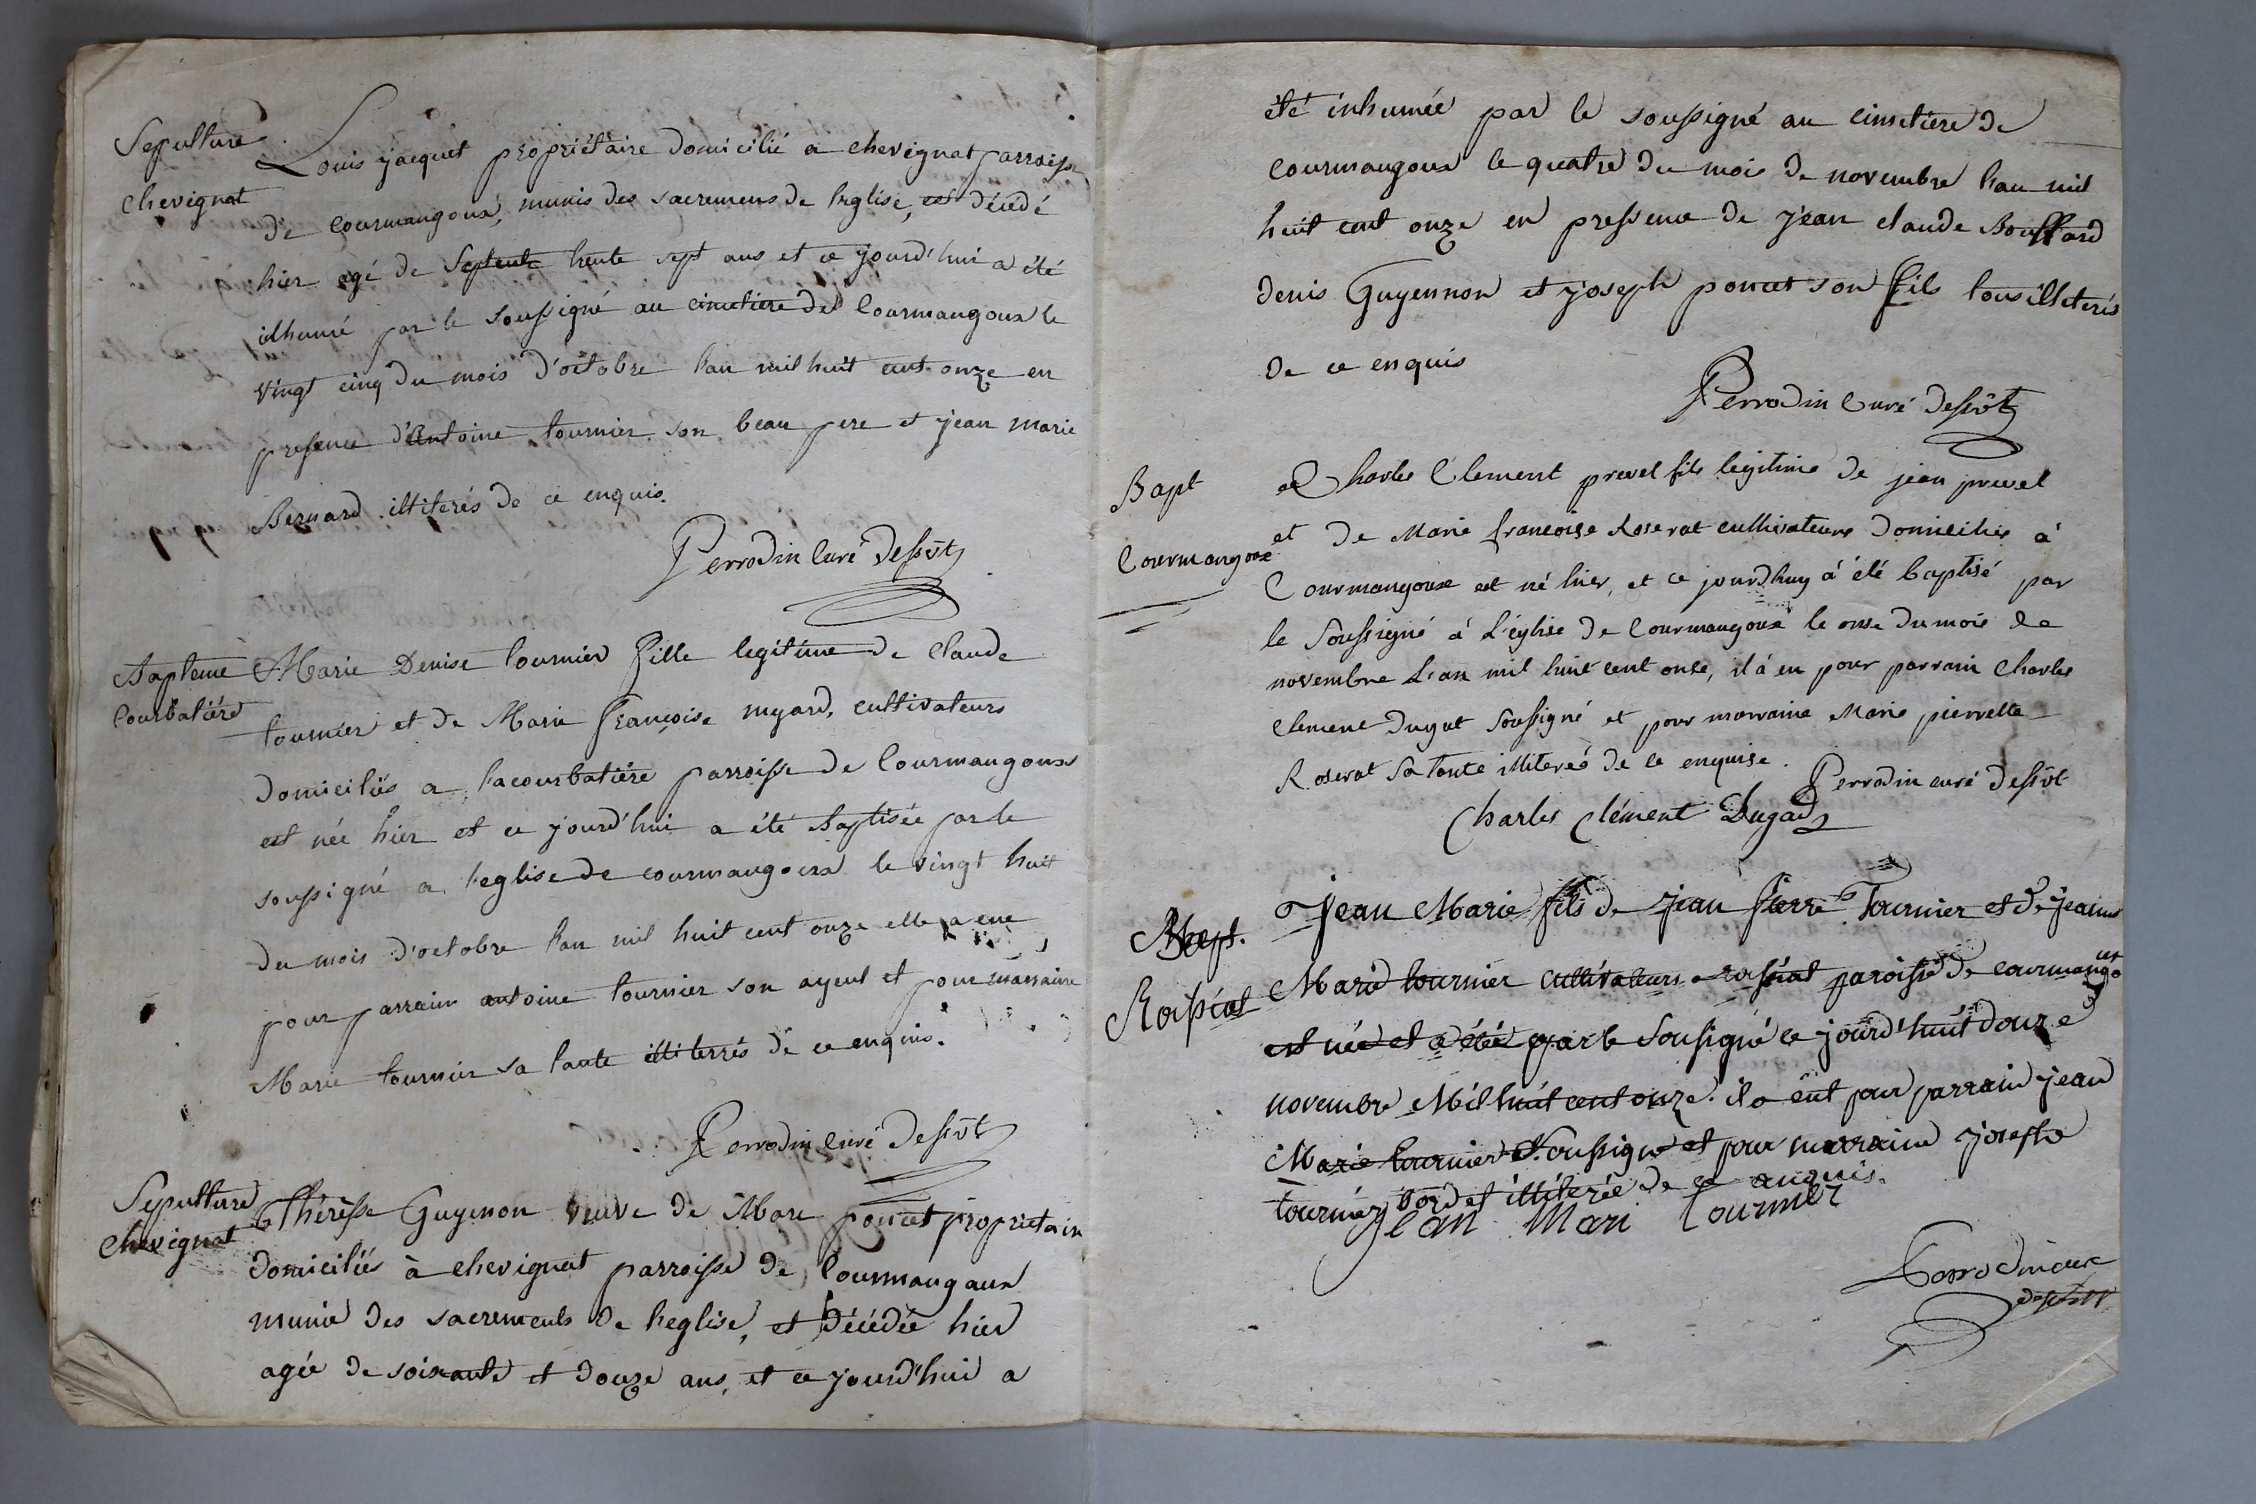 Sepulture
chevignat
Louis jacquet propriétaire domicilié a chevignat parroisse
de Courmangoux, munis des sacremens de leglise, est décédé
hier agé de Septente trente sept ans et ce jourd'hui a été
idhumé par le soussigné au cimetiere de Courmangoux le
vingt cinq du mois d'octobre l'an mil huit cent onze en
presence d'Antoine tournier son beau pere et jean marie
Bernard illiterés de ce enquis.
Perrodin Curé desservt
Bapteme
Courbatiére
Marie Denise tournier fille legitime de Claude
tournier et de Marie Françoise myard, cultivateurs
domiciliés a lacourbatiére parroisse de Courmangoux
est née hier et ce jourd'hui a été Baptisée par le
soussigné a l'eglise de courmangoux le vingt huit
du mois d'octobre l'an mil huit cent onze elle a eue
pour parrain antoine tournier son ayeul et pour marraine
Marie tournier sa tante illiterrés de ce enquis.
Perrodin Curé desservt
Sepulture
Chevignat
Thérèsse Guyenon veuve de Marc poncet proprietaire
domiciliés à chevignat parroisse de Courmangoux
munie des sacrements de leglise, est décédée hier
agée de soixante et douze ans, et ce jourd'hui a
été inhumée par le soussigné au cimetiere de
courmangoux le quatre du mois de novembre l'an mil
huit cent onze en pressence de jean claude Bouffard
denis Guyennon et joseph poncet son fils tous illiterés
de ce enquis
Perrodin Curé desservt
Bapt
Courmangoux
Charles Clement prevel fils legitime de jean prevel
et de Marie françoise Roserat cultivateurs domiciliés à
Courmangoux est né hier, et ce jourdhuy à été baptisé par
le soussigné à L'église de Courmangoux le onse du mois de
novembre L'an mil huit cent onse, il à eu pour parrain Charles
Clement Dugat soussigné et pour marraine Marie pierrette
Roserat sa tante illiterée de ce enquise.
Perrodin curé desservt
Charles Clément Dugad
Bapt.
Roissiat
Jean Marie fils de jean pierre Tournier et de jeanne
Marie tournier cultivateurs a rossiat paroisse de courmangoux
est née et a été par le sousigné ce jourd'huit douze
novembre Mil huit cent onze. il a eut pour parrain jean
Marie tournier soussigne et pour marraine josephe
tournier bordet illiterée de ce enquis.
Jean Mari tournier
Perrodin cure
desservt